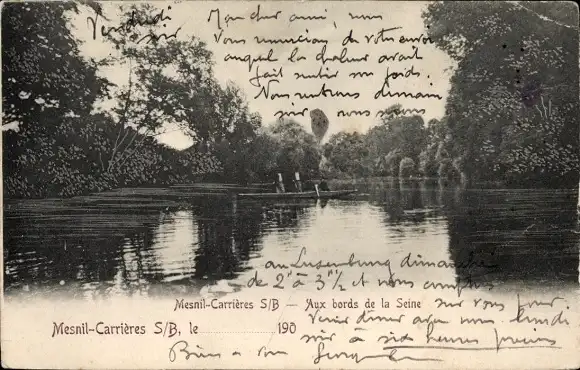 Vendredi
soir
Mon cher ami, nous
vous remercions de votre envoi
auquel la chaleur avait
fait sentir son poids.
Nous rentrons demain
soir nous serons
au Luxembourg dimanche
de 2h à 3h ½ et nous comptons
sur vous pour
venir diner avec nous lundi
soir à six heures précises
Bien à vous
Georges
Mesnil-Carrières S/B — Aux bords de la Seine
Mesnil-Carrières S/B, le 190